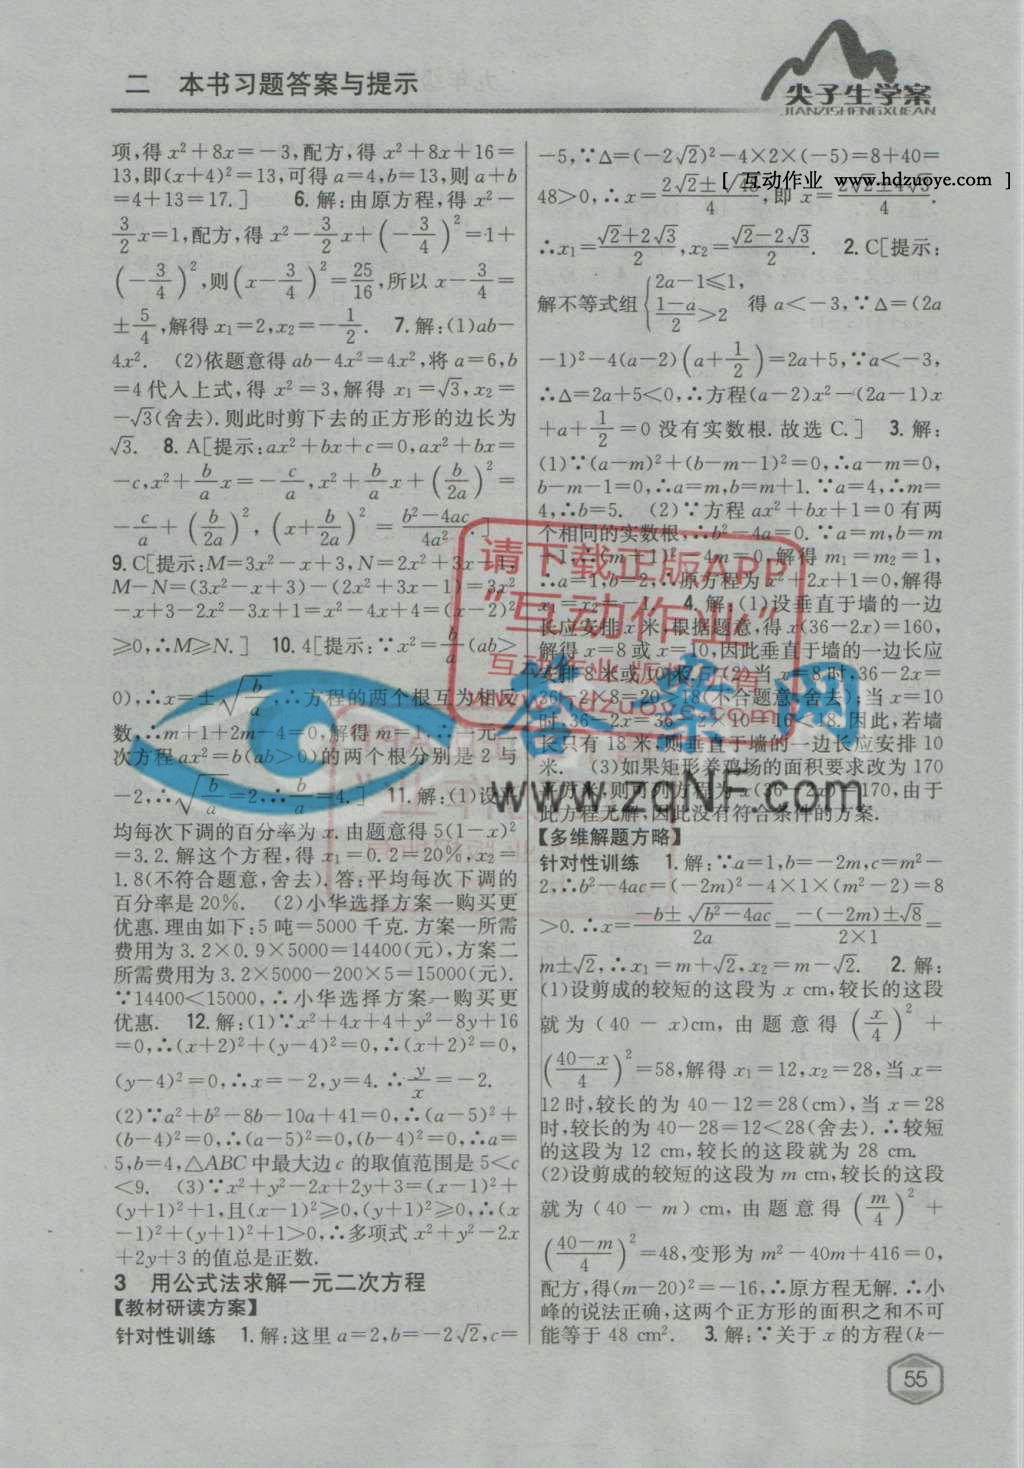 二 本书习题答案与提示
尖子生学案
JIANZISHENGXUEAN
[ 互动作业 www.hdzuoye.com ]
项,得 x²+8x=-3,配方,得 x²+8x+16=
13,即(x+4)²=13,可得 a=4,b=13,则 a+b
=4+13=17.] 6.解:由原方程,得 x²-
3/2 x=1,配方,得 x²-3/2 x+(-3/4)²=1+
(-3/4)²,则(x-3/4)²=25/16,所以 x-3/4=
±5/4,解得 x₁=2,x₂=-1/2. 7.解:(1)ab-
4x². (2)依题意得 ab-4x²=4x²,将 a=6,b
=4代入上式,得 x²=3,解得 x₁=√3,x₂=
-√3(舍去).则此时剪下去的正方形的边长为
√3. 8.A[提示:ax²+bx+c=0,ax²+bx=
-c,x²+b/a x=-c/a,x²+b/a x+(b/2a)²=
-c/a+(b/2a)²,(x+b/2a)²=b²-4ac/4a².]
9.C[提示:M=3x²-x+3,N=2x²+3x-1,
M-N=(3x²-x+3)-(2x²+3x-1)=3x²
-x+3-2x²-3x+1=x²-4x+4=(x-2)²
≥0,∴M≥N.] 10.4[提示:∵x²=b/a(ab>
0),∴x=±√b/a,∴方程的两个根互为相反
数,∴m+1+2m-4=0,解得 m=1,∴一元二
次方程 ax²=b(ab>0)的两个根分别是 2 与
-2,∴√b/a=2,∴b/a=4.] 11.解:(1)设
均每次下调的百分率为 x.由题意得 5(1-x)²
=3.2.解这个方程,得 x₁=0.2=20%,x₂=
1.8(不符合题意,舍去).答:平均每次下调的
百分率是 20%. (2)小华选择方案一购买更
优惠.理由如下:5 吨=5000 千克.方案一所需
费用为 3.2×0.9×5000=14400(元),方案二
所需费用为 3.2×5000-200×5=15000(元).
∵14400<15000,∴小华选择方案一购买更
优惠. 12.解:(1)∵x²+4x+4+y²-8y+16
=0,∴(x+2)²+(y-4)²=0,∴(x+2)²=0,
(y-4)²=0,∴x=-2,y=4.∴y/x=-2.
(2)∵a²+b²-8b-10a+41=0,∴(a-5)²+
(b-4)²=0,∴(a-5)²=0,(b-4)²=0,∴a=
5,b=4,△ABC中最大边 c 的取值范围是 5<c
<9. (3)∵x²+y²-2x+2y+3=(x-1)²+
(y+1)²+1,且(x-1)²≥0,(y+1)²≥0,∴(x
-1)²+(y+1)²+1>0,∴多项式 x²+y²-2x
+2y+3 的值总是正数.
3 用公式法求解一元二次方程
【教材研读方案】
针对性训练 1.解:这里 a=2,b=-2√2,c=
-5,∵Δ=(-2√2)²-4×2×(-5)=8+40=
48>0,∴x=2√2±√48/4,即 x=2√2±4√3/4.
∴x₁=√2+2√3/2,x₂=√2-2√3/2. 2.C[提示:
解不等式组{2a-1≤1, 1-a/2>2 得 a<-3,∵Δ=(2a
-1)²-4(a-2)(a+1/2)=2a+5,∵a<-3,
∴Δ=2a+5<0,∴方程(a-2)x²-(2a-1)x
+a+1/2=0 没有实数根.故选 C.] 3.解:
(1)∵(a-m)²+(b-m-1)²=0,∴a-m=0,
b-m-1=0,∴a=m,b=m+1.∵a=4,∴m=
4,∴b=5. (2)∵方程 ax²+bx+1=0 有两
个相同的实数根,∴b²-4a=0.∵a=m,b=m
+1,∴(m+1)²-4m=0,解得 m₁=m₂=1,
∴a=1,b=2,∴原方程为 x²+2x+1=0,解得
x₁=x₂=-1. 4.解:(1)设垂直于墙的一边
长应安排 x 米.根据题意,得 x(36-2x)=160,
解得 x=8 或 x=10,因此垂直于墙的一边长应
安排 8 米或 10 米. (2)当 x=8 时,36-2x=
36-2×8=20>18(不合题意,舍去);当 x=10
时,36-2x=36-2×10=16<18.因此,若墙
长只有 18 米,则垂直于墙的一边长应安排 10
米. (3)如果矩形养鸡场的面积要求改为 170
平方米,则可列方程为 x(36-2x)=170,由于
此方程无解,因此没有符合条件的方案.
【多维解题方略】
针对性训练 1.解:∵a=1,b=-2m,c=m²-
2,∴b²-4ac=(-2m)²-4×1×(m²-2)=8
>0.∴x=-b±√b²-4ac/2a=-(-2m)±√8/2×1=
m±√2,∴x₁=m+√2,x₂=m-√2. 2.解:
(1)设剪成的较短的这段为 x cm,较长的这段
就为(40-x)cm,由题意得(x/4)²+
(40-x/4)²=58,解得 x₁=12,x₂=28,当 x=
12时,较长的为 40-12=28(cm),当 x=28
时,较长的为 40-28=12<28(舍去).∴较短
的这段为 12 cm,较长的这段就为 28 cm.
(2)设剪成的较短的这段为 m cm,较长的这段
就为(40-m)cm,由题意得(m/4)²+
(40-m/4)²=48,变形为 m²-40m+416=0,
配方,得(m-20)²=-16,∴原方程无解.∴小
峰的说法正确,这两个正方形的面积之和不可
能等于 48 cm². 3.解:∵关于 x 的方程(k-
55
请下载正版APP
"互动作业"
互动作业 版权所有
www.hdzuoye.com
答案网
www.zqNF.com